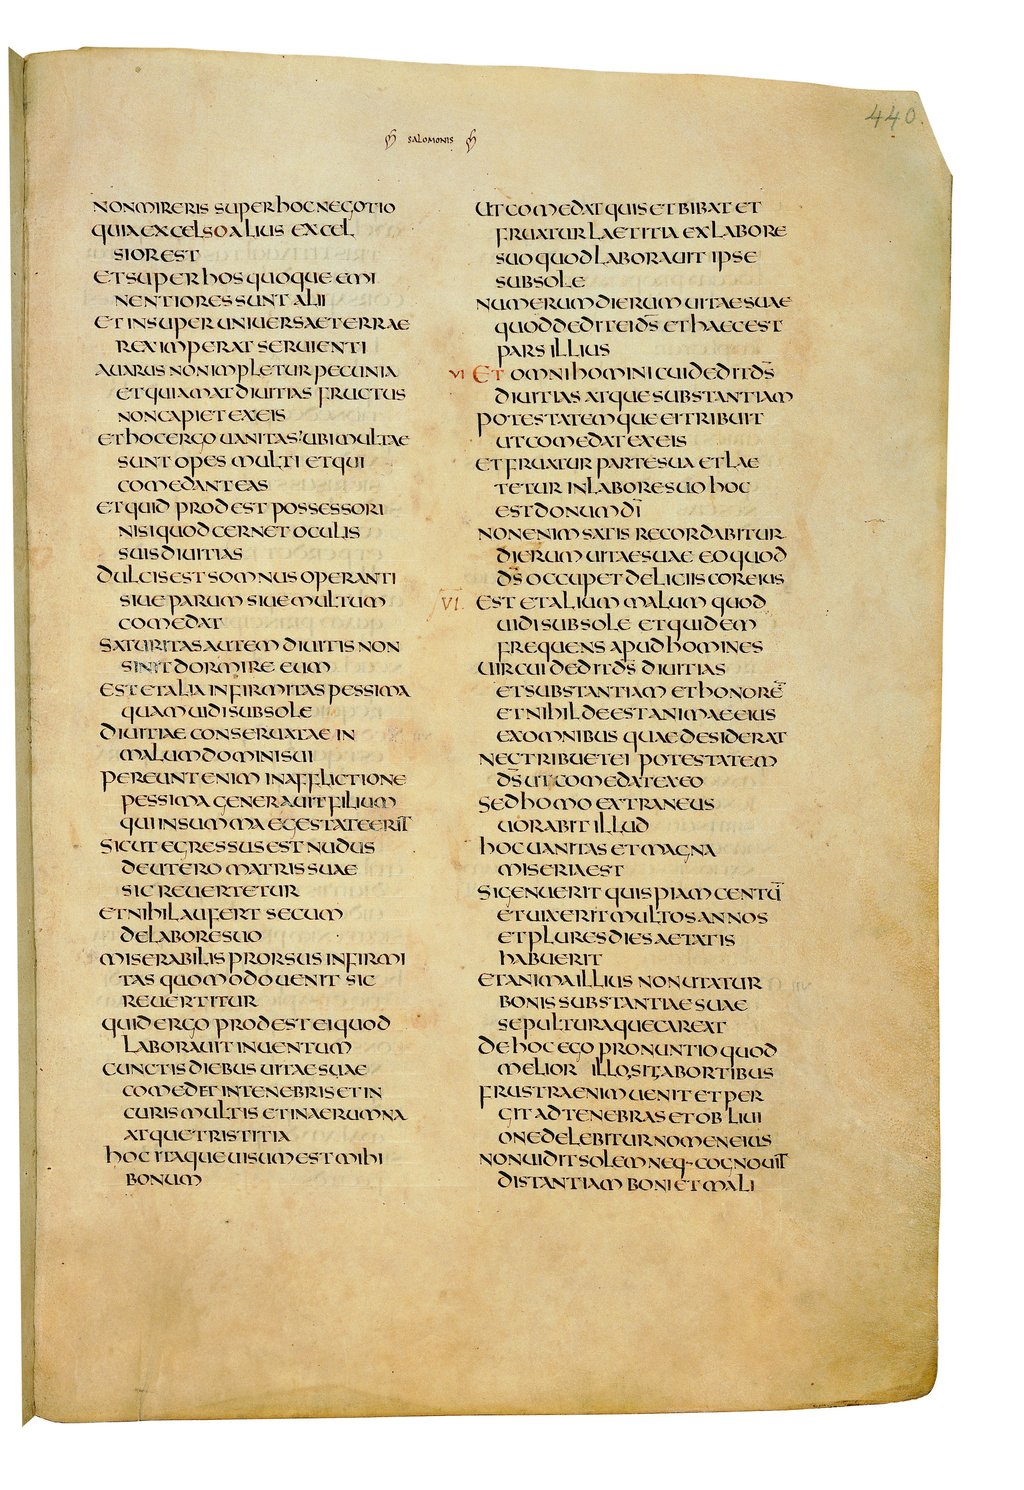 SALOMONIS
440.
NONMIRERIS SUPER HOC NEGOTIO
QUIA EXCELSO ALIUS EXCEL
SIOR EST
ET SUPER HOS QUOQUE EMI
NENTIORES SUNT ALII
ET INSUPER UNIUERSAE TERRAE
REX IMPERAT SERUIENTI
AUARUS NON IMPLETUR PECUNIA
ET QUI AMAT DIUITIAS FRUCTUS
NON CAPIET EX EIS
ET HOC ERGO UANITAS UBI MULTAE
SUNT OPES MULTI ET QUI
COMEDANT EAS
ET QUID PRODEST POSSESSORI
NISI QUOD CERNET OCULIS
SUIS DIUITIAS
DULCIS EST SOMNUS OPERANTI
SIUE PARUM SIUE MULTUM
COMEDAT
SATURITAS AUTEM DIUITIS NON
SINIT DORMIRE EUM
EST ET ALIA INFIRMITAS PESSIMA
QUAM UIDI SUB SOLE
DIUITIAE CONSERUATAE IN
MALUM DOMINI SUI
PEREUNT ENIM IN AFFLICTIONE
PESSIMA GENERAUIT FILIUM
QUI IN SUMMA EGESTATE ERIT
SICUT EGRESSUS EST NUDUS
DE UTERO MATRIS SUAE
SIC REUERTETUR
ET NIHIL AUFERT SECUM
DE LABORE SUO
MISERABILIS PRORSUS INFIRMI
TAS QUOMODO UENIT SIC
REUERTITUR
QUID ERGO PRODEST EI QUOD
LABORAUIT IN UENTUM
CUNCTIS DIEBUS UITAE SUAE
COMEDET IN TENEBRIS ET IN
CURIS MULTIS ET IN AERUMNA
ATQUE TRISTITIA
HOC ITAQUE UISUM EST MIHI
BONUM
UT COMEDAT QUIS ET BIBAT ET
FRUATUR LAETITIA EX LABORE
SUO QUOD LABORAUIT IPSE
SUB SOLE
NUMERUM DIERUM UITAE SUAE
QUOD DEDIT EI D̄S ET HAEC EST
PARS ILLIUS
VI ET OMNI HOMINI CUI DEDIT D̄S
DIUITIAS ATQUE SUBSTANTIAM
POTESTATEMQUE EI TRIBUIT
UT COMEDAT EX EIS
ET FRUATUR PARTE SUA ET LAE
TETUR IN LABORE SUO HOC
EST DONUM D̄I
NON ENIM SATIS RECORDABITUR
DIERUM UITAE SUAE EO QUOD
D̄S OCCUPET DELICIIS COR EIUS
VI. EST ET ALIUM MALUM QUOD
UIDI SUB SOLE ET QUIDEM
FREQUENS APUD HOMINES
UIR CUI DEDIT D̄S DIUITIAS
ET SUBSTANTIAM ET HONORĒ
ET NIHIL DEEST ANIMAE EIUS
EX OMNIBUS QUAE DESIDERAT
NEC TRIBUET EI POTESTATEM
D̄S UT COMEDAT EX EO
SED HOMO EXTRANEUS
UORABIT ILLUD
HOC UANITAS ET MAGNA
MISERIA EST
SI GENUERIT QUISPIAM CENTŪ
ET UIXERIT MULTOS ANNOS
ET PLURES DIES AETATIS
HABUERIT
ET ANIMA ILLIUS NON UTATUR
BONIS SUBSTANTIAE SUAE
SEPULTURAQUE CAREAT
DE HOC EGO PRONUNTIO QUOD
MELIOR ILLO SIT ABORTIBUS
FRUSTRA ENIM UENIT ET PER
GIT AD TENEBRAS ET OBLIUI
ONE DELEBITUR NOMEN EIUS
NON UIDIT SOLEM NEQ· COGNOUIT
DISTANTIAM BONI ET MALI